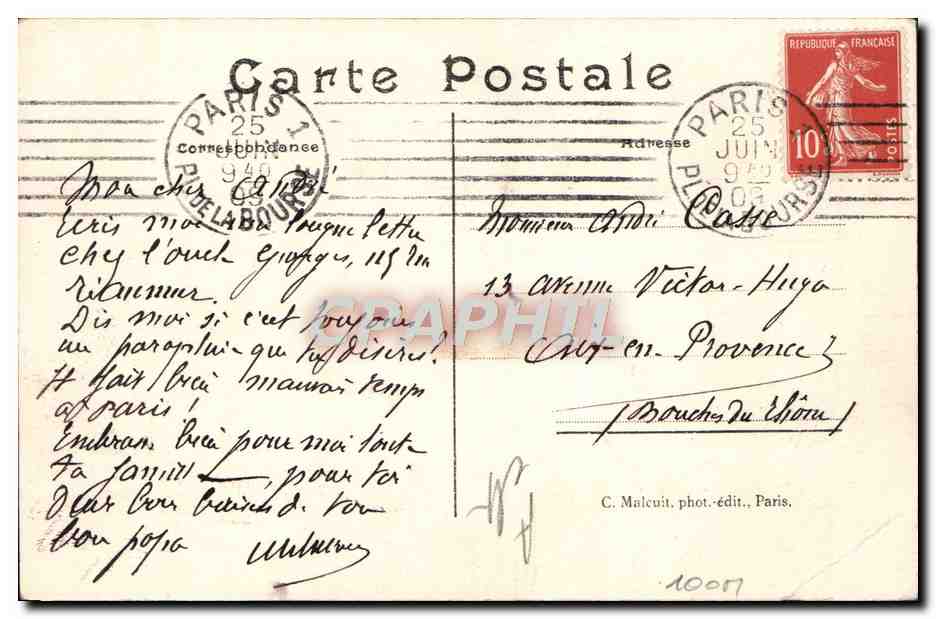 Carte Postale
Correspondance
Adresse
REPUBLIQUE FRANÇAISE
10
POSTES
PARIS 1
25
JUIN
9
09
PL. DE LA BOURSE
PARIS 1
25
JUIN
9
09
PL. DE LA BOURSE
Mon cher André
Ecris moi une longue lettre
chez l'oncle Georges, 115 rue
Réaumur.
Dis moi si c'est toujours
un parapluie que tu désires?
Il fait bien mauvais temps
à Paris!
Embrasse bien pour moi toute
ta famille, pour toi
deux bons baisers de ton
bon papa
Monsieur André Casse
13 avenue Victor-Hugo
Aix-en-Provence
(Bouches du Rhône)
CPAPHIL
C. Malcuit, phot.-édit., Paris.